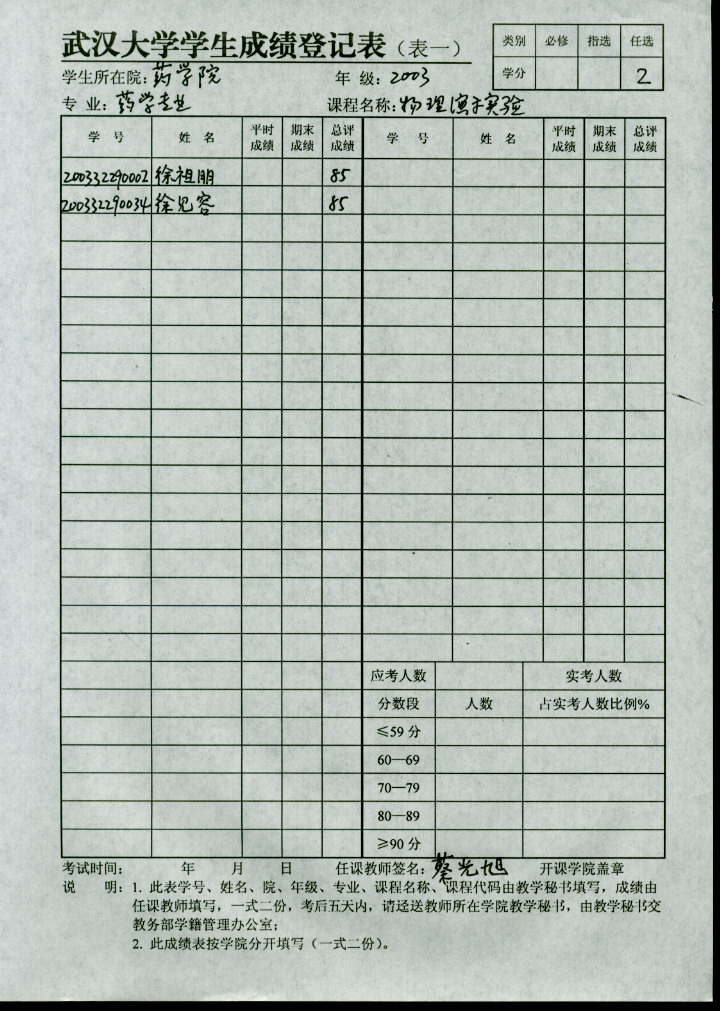 武汉大学学生成绩登记表（表一）
类别 必修 指选 任选
学分 2
学生所在院：药学院 年 级：2003
专 业：药学专业 课程名称：物理演示实验
学 号 姓 名 平时成绩 期末成绩 总评成绩 学 号 姓 名 平时成绩 期末成绩 总评成绩
200332290002 徐祖朋 85
200332290034 徐见容 85
应考人数 实考人数
分数段 人数 占实考人数比例%
≤59 分
60—69
70—79
80—89
≥90 分
考试时间： 年 月 日 任课教师签名：蔡光旭 开课学院盖章
说 明：1. 此表学号、姓名、院、年级、专业、课程名称、课程代码由教学秘书填写，成绩由
任课教师填写，一式二份，考后五天内，请迳送教师所在学院教学秘书，由教学秘书交
教务部学籍管理办公室；
2. 此成绩表按学院分开填写（一式二份）。